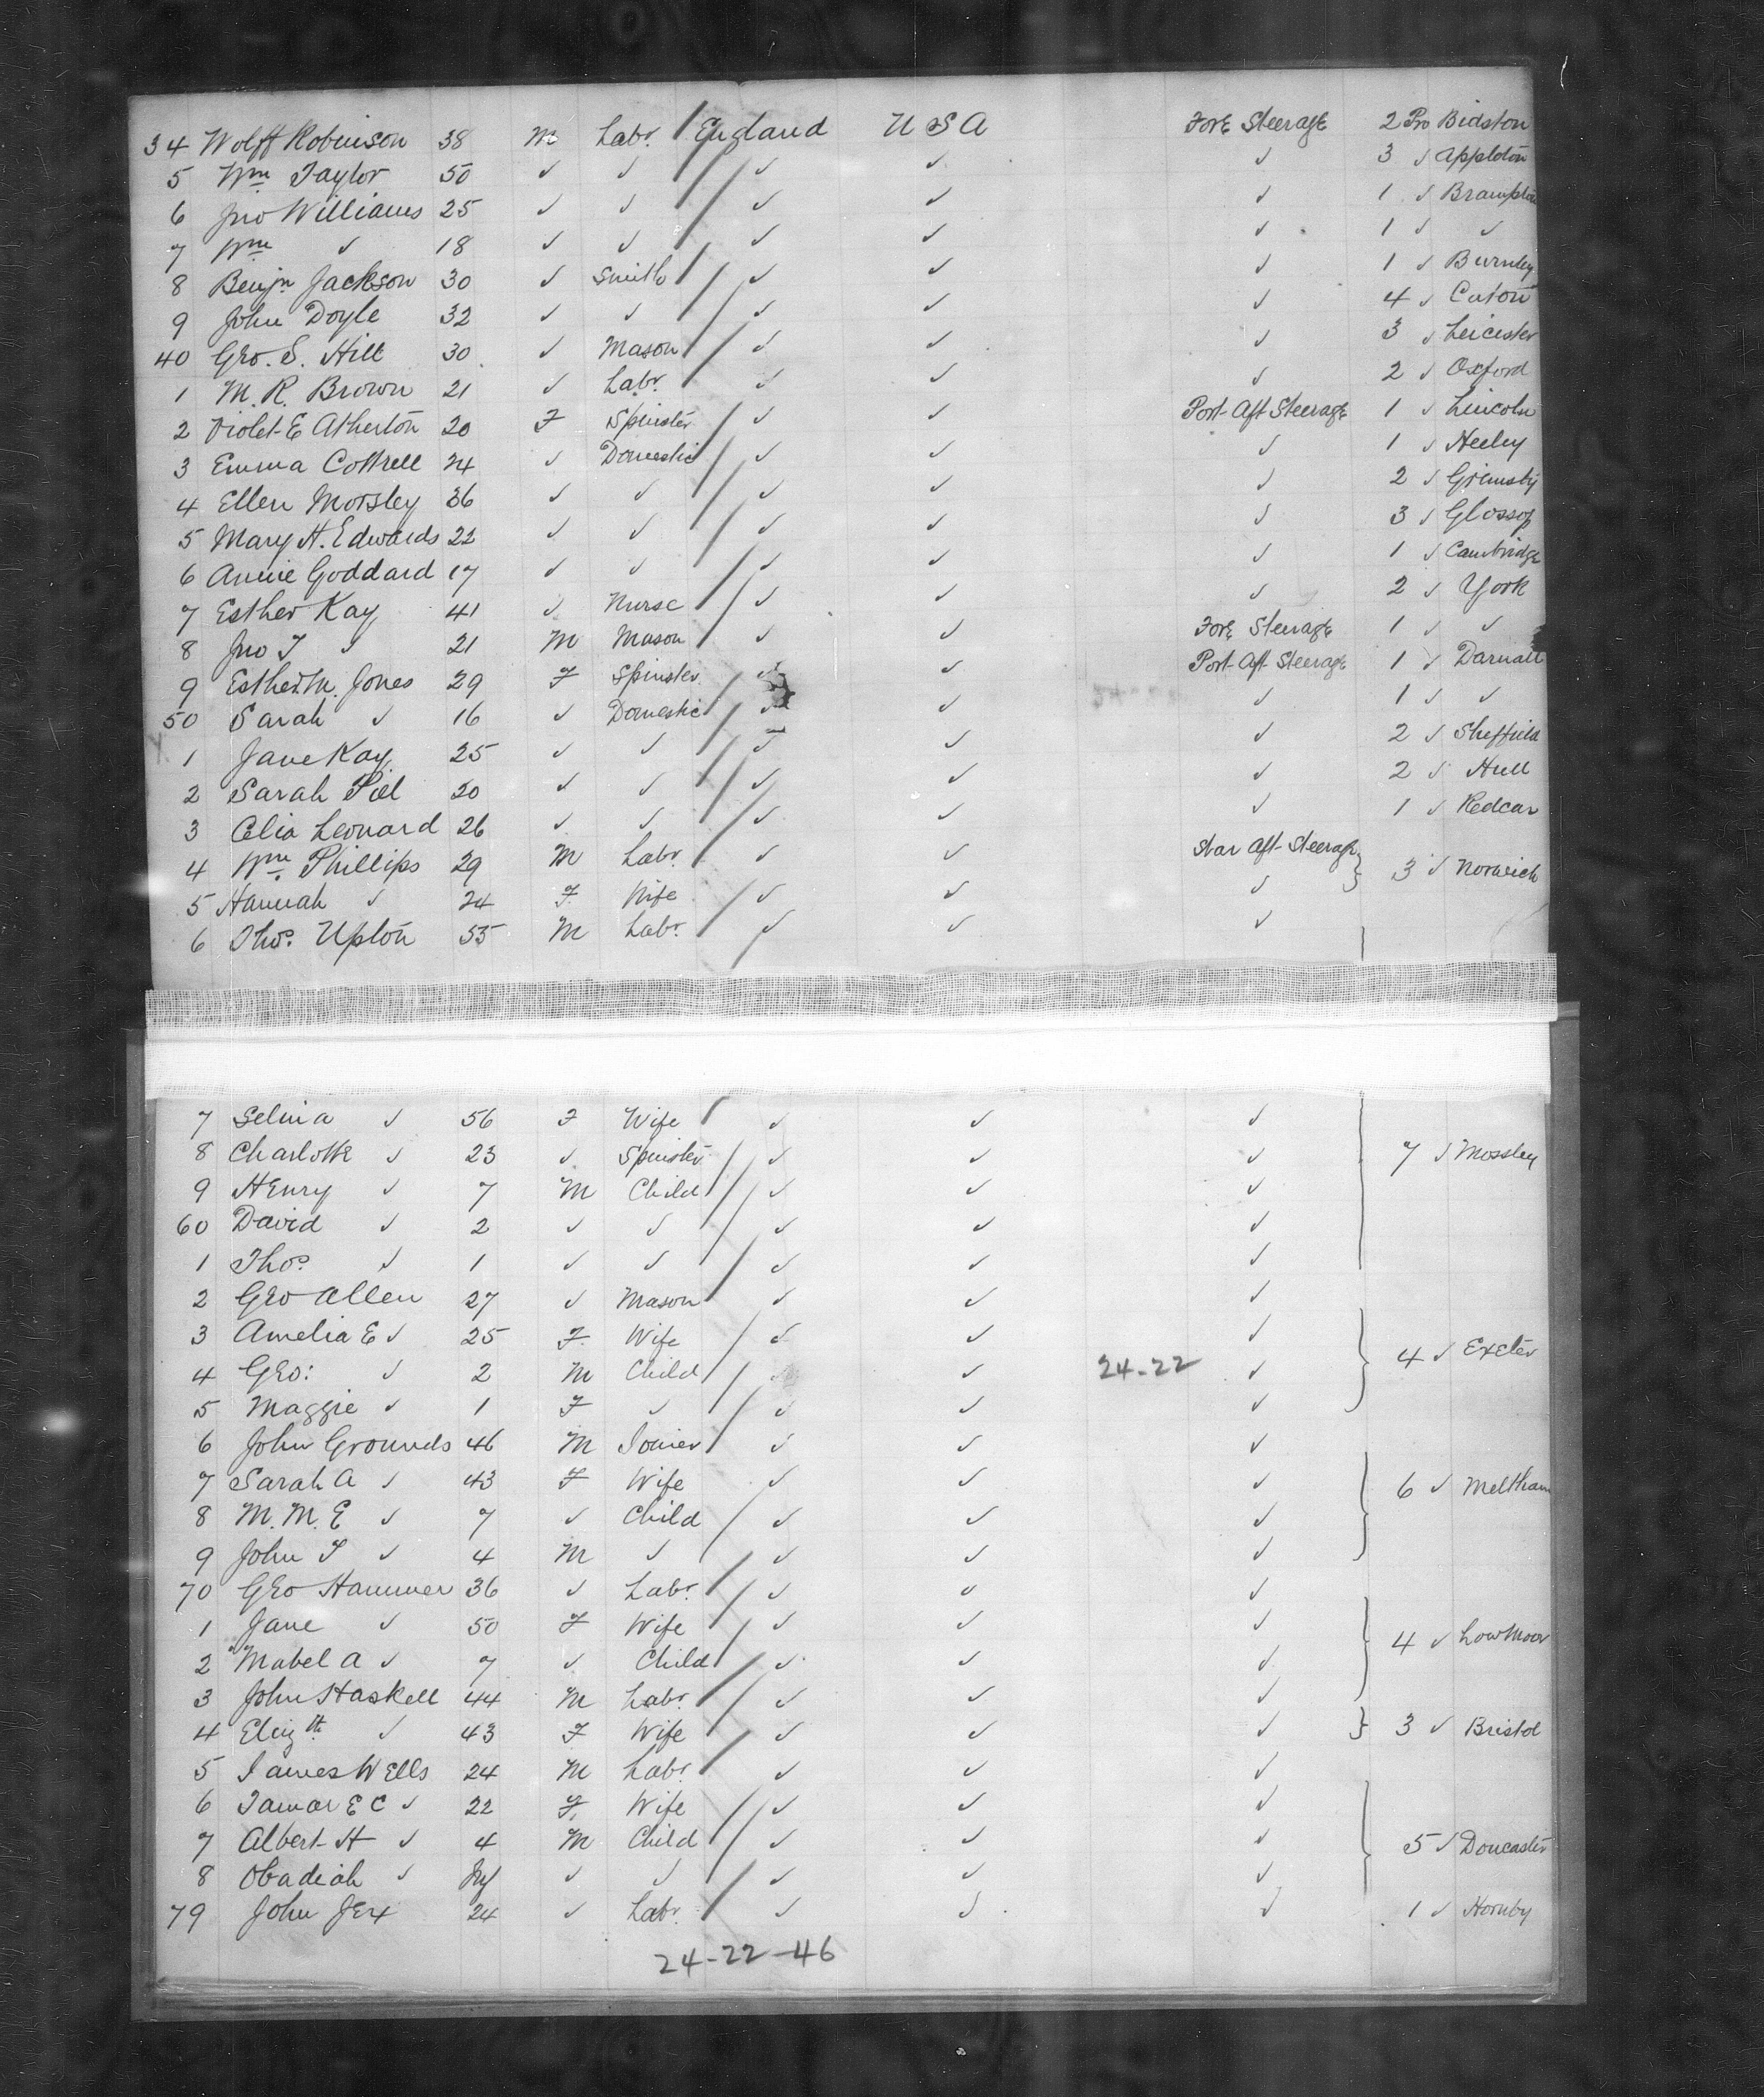 34 Wolff Robinson 38 M Labr. England U S A Fore Steerage 2 Pro Bidston
5 Wm Taylor 50 ✓ ✓ ✓ ✓ ✓ 3 ✓ Appleton
6 Jno Williams 25 ✓ ✓ ✓ ✓ ✓ 1 ✓ Brampton
7 Wm ✓ 18 ✓ ✓ ✓ ✓ ✓ 1 ✓ ✓
8 Benjn Jackson 30 ✓ Smith ✓ ✓ ✓ 1 ✓ Burnley
9 John Doyle 32 ✓ ✓ ✓ ✓ ✓ 4 ✓ Caton
40 Geo. S. Hill 30 ✓ Mason ✓ ✓ ✓ 3 ✓ Leicester
1 M. R. Brown 21 ✓ Labr. ✓ ✓ ✓ 2 ✓ Oxford
2 Violet E Atherton 20 F Spinster ✓ ✓ Port Aft Steerage 1 ✓ Lincoln
3 Emma Cottrell 24 ✓ Domestic ✓ ✓ ✓ 1 ✓ Heeley
4 Ellen Morsley 36 ✓ ✓ ✓ ✓ ✓ 2 ✓ Grimsby
5 Mary H. Edwards 22 ✓ ✓ ✓ ✓ ✓ 3 ✓ Glossop
6 Annie Goddard 17 ✓ ✓ ✓ ✓ ✓ 1 ✓ Cambridge
7 Esther Kay 41 ✓ Nurse ✓ ✓ ✓ 2 ✓ York
8 Jno T ✓ 21 M Mason ✓ ✓ Fore Steerage 1 ✓ ✓
9 Esther M. Jones 29 F Spinster ✓ ✓ Port Aft Steerage 1 ✓ Darnall
50 Sarah ✓ 16 ✓ Domestic ✓ ✓ ✓ 1 ✓ ✓
1 Jane Kay 25 ✓ ✓ ✓ ✓ ✓ 2 ✓ Sheffield
2 Sarah 20 ✓ ✓ ✓ ✓ ✓ 2 ✓ Hull
3 Celia Leonard 26 ✓ ✓ ✓ ✓ ✓ 1 ✓ Redcar
4 Wm. Phillips 29 M Labr. ✓ ✓ Star Aft Steerage 3 ✓ Norwich
5 Hannah ✓ 24 F Wife ✓ ✓ ✓
6 Thos. Upton 55 M Labr. ✓ ✓ ✓
7 Selina ✓ 56 F Wife ✓ ✓ ✓
8 Charlotte ✓ 23 ✓ Spinster ✓ ✓ ✓ 7 ✓ Mossley
9 Henry ✓ 7 M Child ✓ ✓ ✓
60 David ✓ 2 ✓ ✓ ✓ ✓ ✓
1 Thos. ✓ 1 ✓ ✓ ✓ ✓ ✓
2 Geo Allen 27 ✓ Mason ✓ ✓ ✓
3 Amelia E ✓ 25 F Wife ✓ ✓ ✓ 4 ✓ Exeter
4 Geo: ✓ 2 M Child ✓ 24-22 ✓
5 Maggie ✓ 1 F ✓ ✓ ✓ ✓
6 John Grounds 46 M Joiner ✓ ✓ ✓
7 Sarah A ✓ 43 F Wife ✓ ✓ ✓ 6 ✓ Meltham
8 M. M. E ✓ 7 ✓ Child ✓ ✓ ✓
9 John T ✓ 4 M ✓ ✓ ✓ ✓
70 Geo Hammer 36 ✓ Labr. ✓ ✓ ✓
1 Jane ✓ 50 F Wife ✓ ✓ ✓ 4 ✓ Low Moor
2 Mabel A ✓ 7 ✓ Child ✓ ✓ ✓
3 John Haskell 44 M Labr. ✓ ✓ ✓
4 Elizth ✓ 43 F Wife ✓ ✓ ✓ 3 ✓ Bristol
5 James Wells 24 M Labr. ✓ ✓ ✓
6 Tamar E C ✓ 22 F Wife ✓ ✓ ✓
7 Albert H ✓ 4 M Child ✓ ✓ ✓ 5 ✓ Doncaster
8 Obadiah ✓ Inf ✓ ✓ ✓ ✓ ✓
79 John Jex 24 ✓ Labr. ✓ ✓ ✓ 1 ✓ Hornby
24-22-46